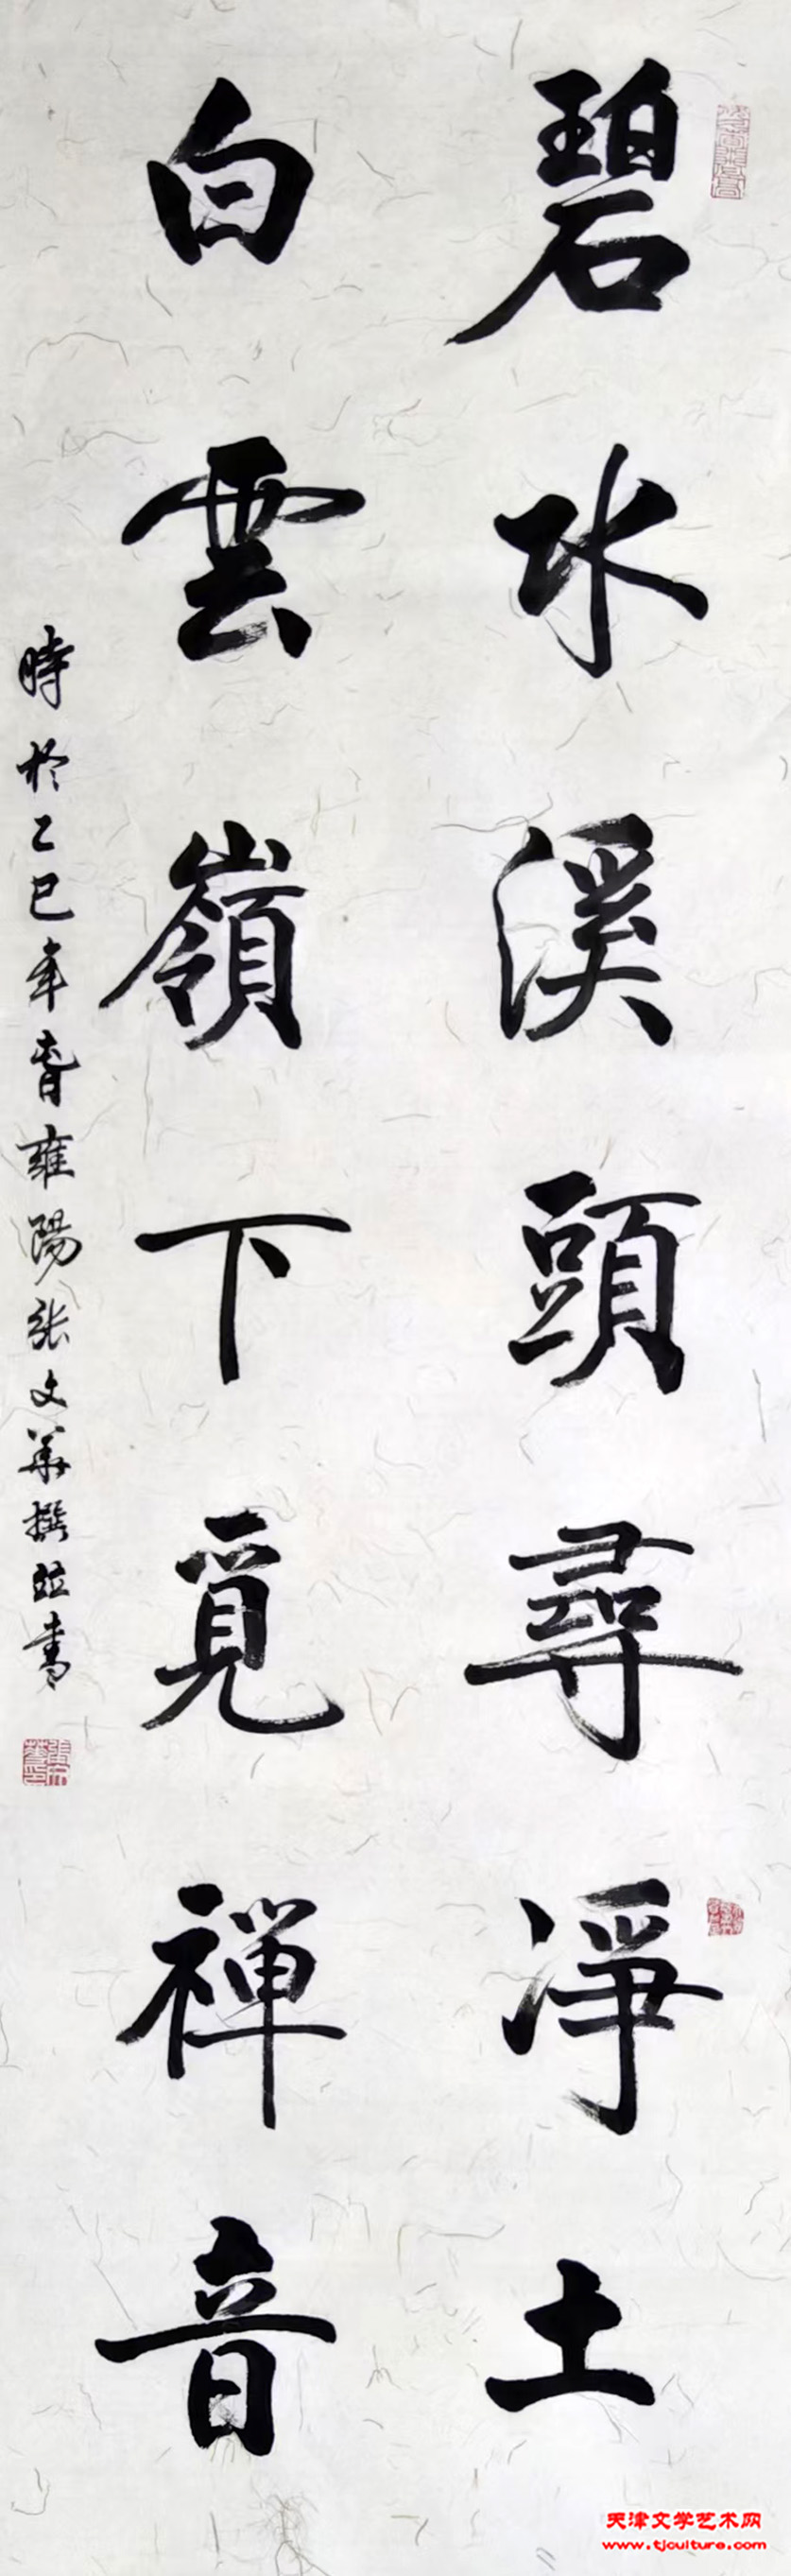 碧水溪頭尋淨土
白雲嶺下覓禪音
時於乙巳年春雍陽張文華撰並書
天津文学艺术网
www.tjculture.com